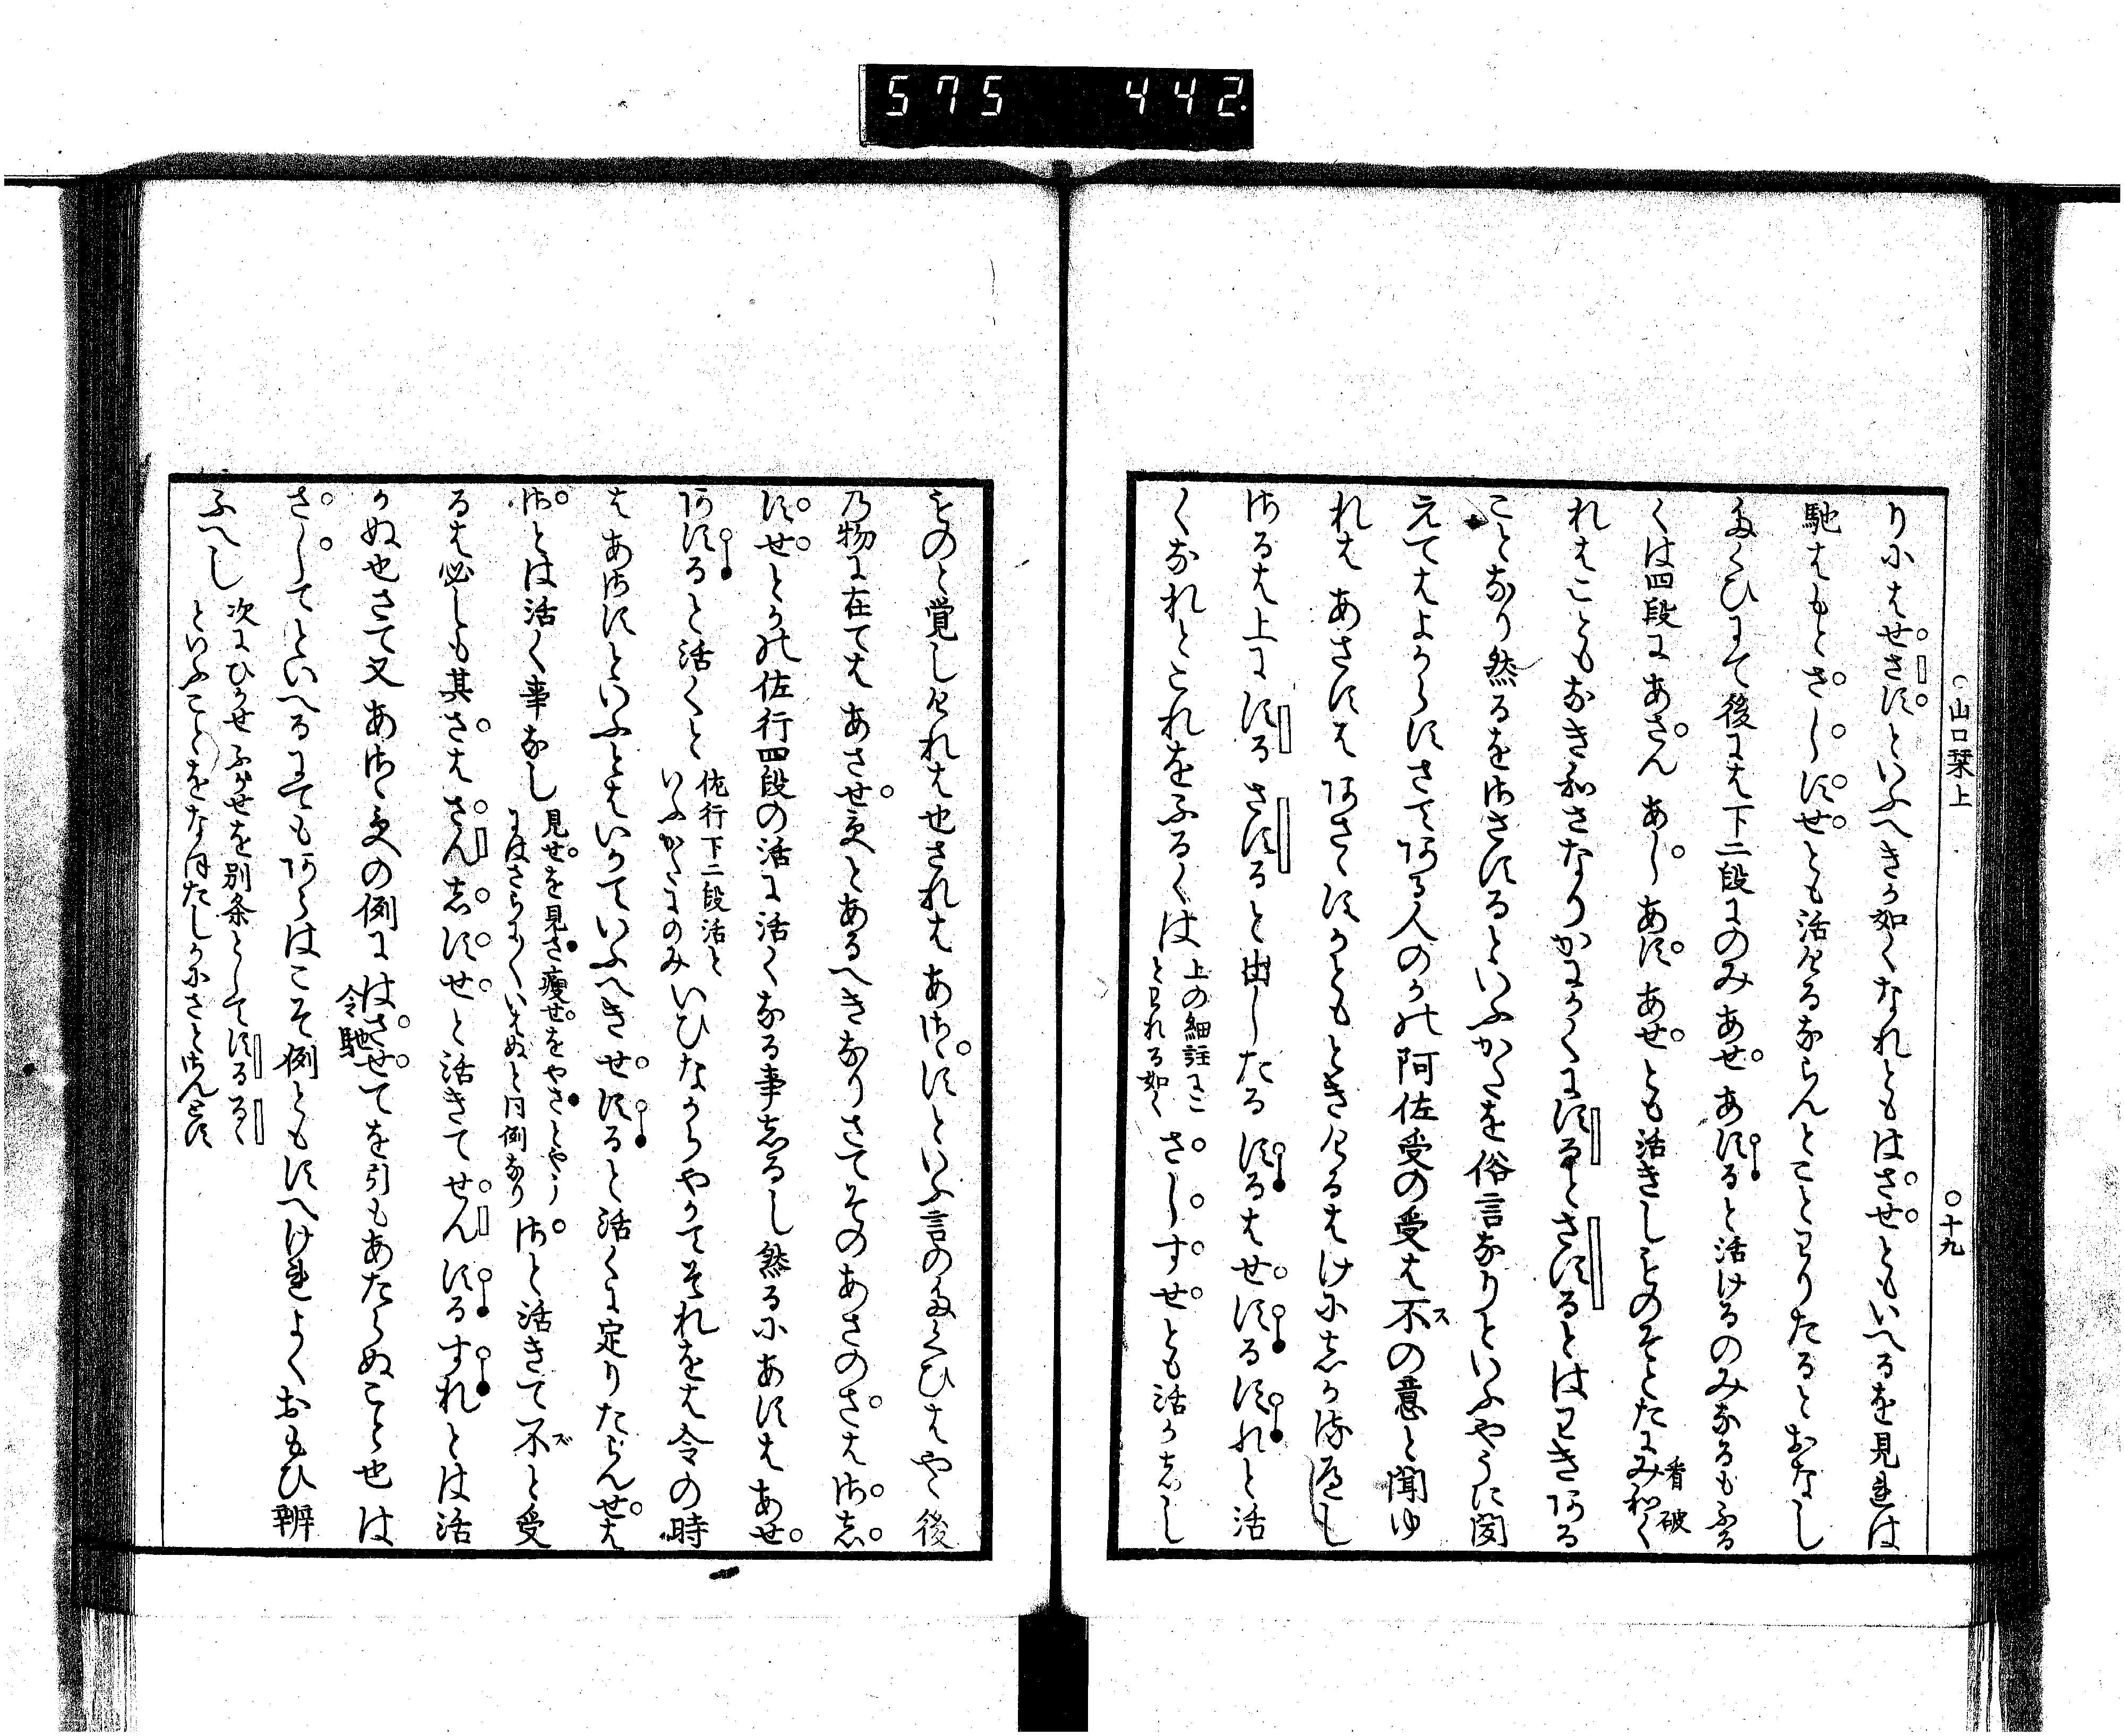 575 442
山口栞上 ○十九
りにはせさすといふへきか如くなれともはさせともいへるを見れは
馳はもとさしすせとも活けるならんとことわりたるとおなし
たくひにて後には下二段にのみあせあすると活けるのみなるもふる
くは四段にあさんあしあすあせとも活きしものそとたにみわく 看破
れはこともなきわさなりかにかくにするとさするとはわきある
ことなり然るをささするといふかたを俗言なりといふやうに聞
えてはよからすさてある人のかの阿佐受の受は不スの意と聞ゆ
れは あさすは あさゝすかともときけるはけにしか
さるは上にする さすると出したる するはせするすれと活
くなれとこれをふるくは 上の細註にこ とわれる如く さしすせとも活かしし
ものと覚しけれは也されは あさすといふ言のたくひはやゝ後
乃物に在ては あさせ受とあるへきなりさてそのあさのさはさし
すせとかの佐行四段の活に活くなる事しるし然るにあすは あせ
あすると活くと 佐行下二段活と いふかたにのみ いひなからやかてそれをは令の時
はあさすといふとはいかていふへきせすると活くに定りたらんせは
さとは活く事なし 見せを見さ痩せをやさとやう にはさらにいはぬと同例なり さと活きて不ズと受
るは必しも其さは さんしすせと活きてせんするすれとは活
かぬ也さて又 あさゝ受の例に はさせてを引もあたらぬこと也は 令馳
さしてといへるにても あらはこそ例ともすへけれよくおもひ辨
ふへし 次にひかせふかせを別条としてするるゝ といふことをなほたしかにさとさんとす